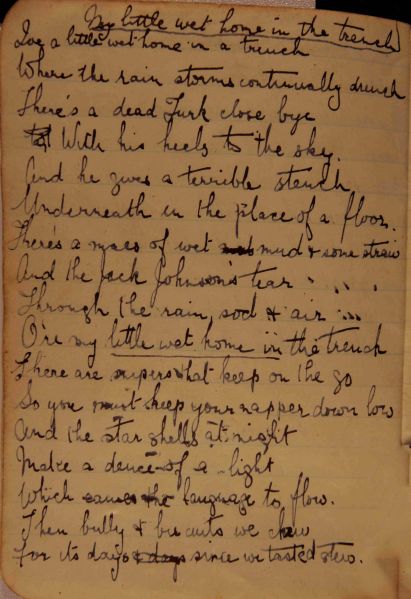 My little wet home in the trench
I've a little wet home in a trench
Where the rain storms continually drench
There's a dead Turk close bye
With his heels to the sky.
And he gives a terrible stench
Underneath in the place of a floor.
There's a mass of wet mud & some straw
And the Jack Johnson's tear " " "
Through the rain, sod & air ....
O're my little wet home in the trench
There are snipers that keep on the go
So you must keep your napper down low
And the star shells at night
Make a deuce of a light
Which causes the language to flow.
Then bully & biscuits we chew
For its days & days since we tasted stew.